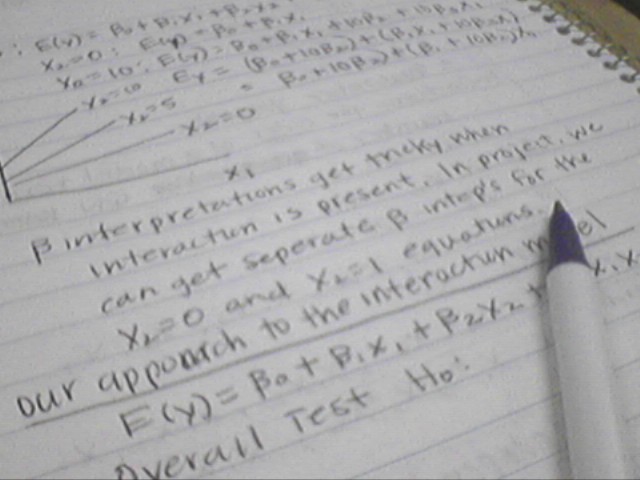 : E(y) = β₀ + β₁X₁ + β₂X₂
X₂=0: E(y) = β₀ + β₁X₁
X₂=10: E(y) = β₀ + β₁X₁ + 10β₂ + 10β₃X₁
Ey = (β₀+10β₂) + (β₁X₁ + 10β₃X₁)
= β₀+10β₂) + (β₁ + 10β₃)X₁
X₂=10
X₂=5
X₂=0
X₁
β interpretations get tricky when
interaction is present. In project, we
can get seperate β intep's for the
X₂=0 and X₂=1 equations.
our apporach to the interaction
E(y) = β₀ + β₁X₁ + β₂X₂ +
Overall Test H₀: